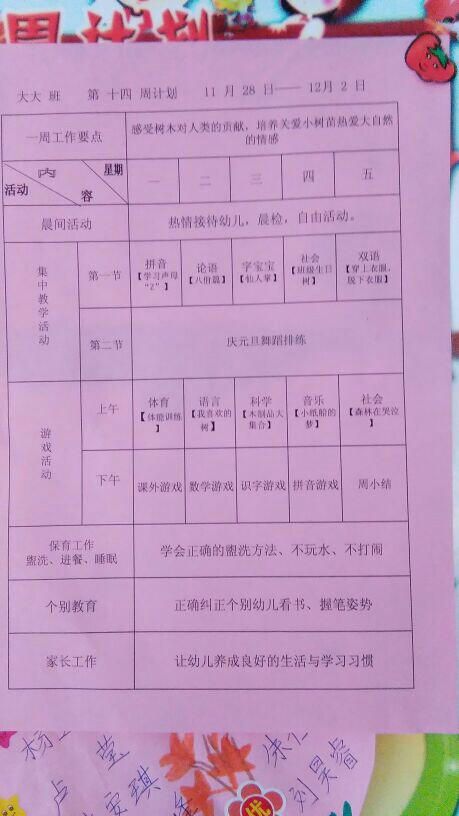 周计划
大大 班 第 十四 周计划 11 月 28 日—— 12月 2 日
一周工作要点
感受树木对人类的贡献，培养关爱小树苗热爱大自然
的情感
内
容
星期
活动
一 二 三 四 五
晨间活动
热情接待幼儿，晨检，自由活动。
集中教学活动
第一节
拼音
【学习声母
“Z”】
论语
【八佾篇】
字宝宝
【仙人掌】
社会
【班级生日
树】
双语
【穿上衣服，
脱下衣服】
第二节
庆元旦舞蹈排练
游戏活动
上午
体育
【体能训练】
语言
【我喜欢的
树】
科学
【木制品大
集合】
音乐
【小纸船的
梦】
社会
【森林在哭泣】
下午
课外游戏 数学游戏 识字游戏 拼音游戏 周小结
保育工作
盥洗、进餐、睡眠
学会正确的盥洗方法、不玩水、不打闹
个别教育
正确纠正个别幼儿看书、握笔姿势
家长工作
让幼儿养成良好的生活与学习习惯
杨
卢 莹
安琪
刘昊睿
优